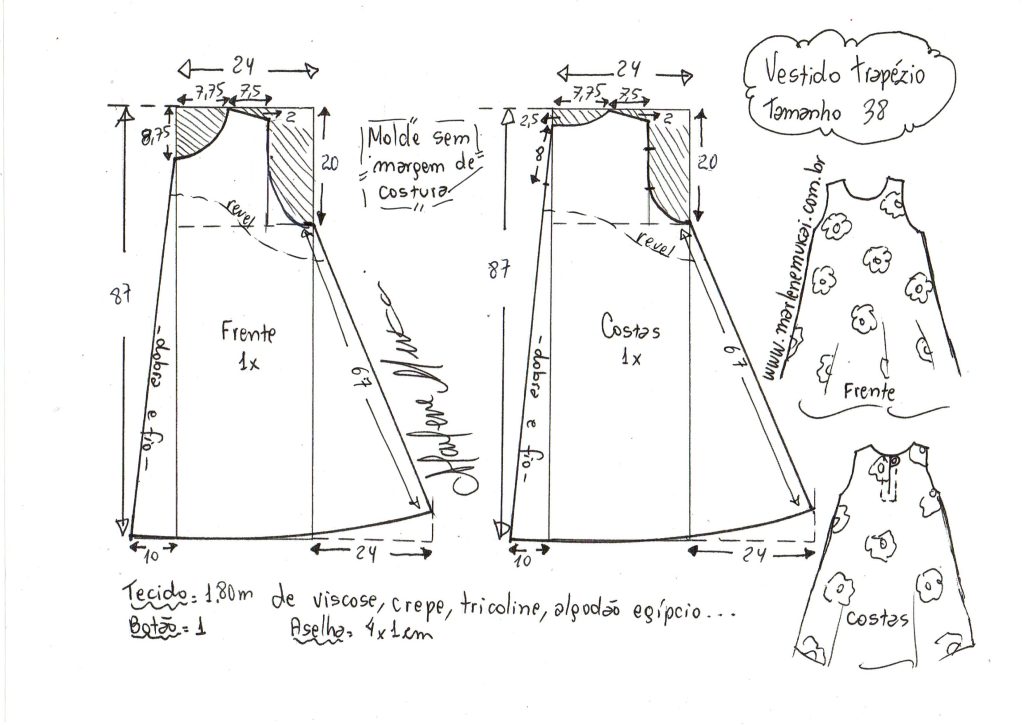 24
7,75 7,5
2
8,75
20
revel
87
Frente
1x
67
-dobra e fio-
10
24
Molde sem
margem de
costura
Marlene Mukai
24
7,75 7,5
2,5
2
8
20
revel
87
Costas
1x
67
-dobra e fio-
10
24
Vestido trapézio
Tamanho 38
www.marlenemukai.com.br
Frente
Costas
Tecido = 1,80m de viscose, crepe, tricoline, algodão egípcio...
Botão = 1 Aselha = 4x1cm